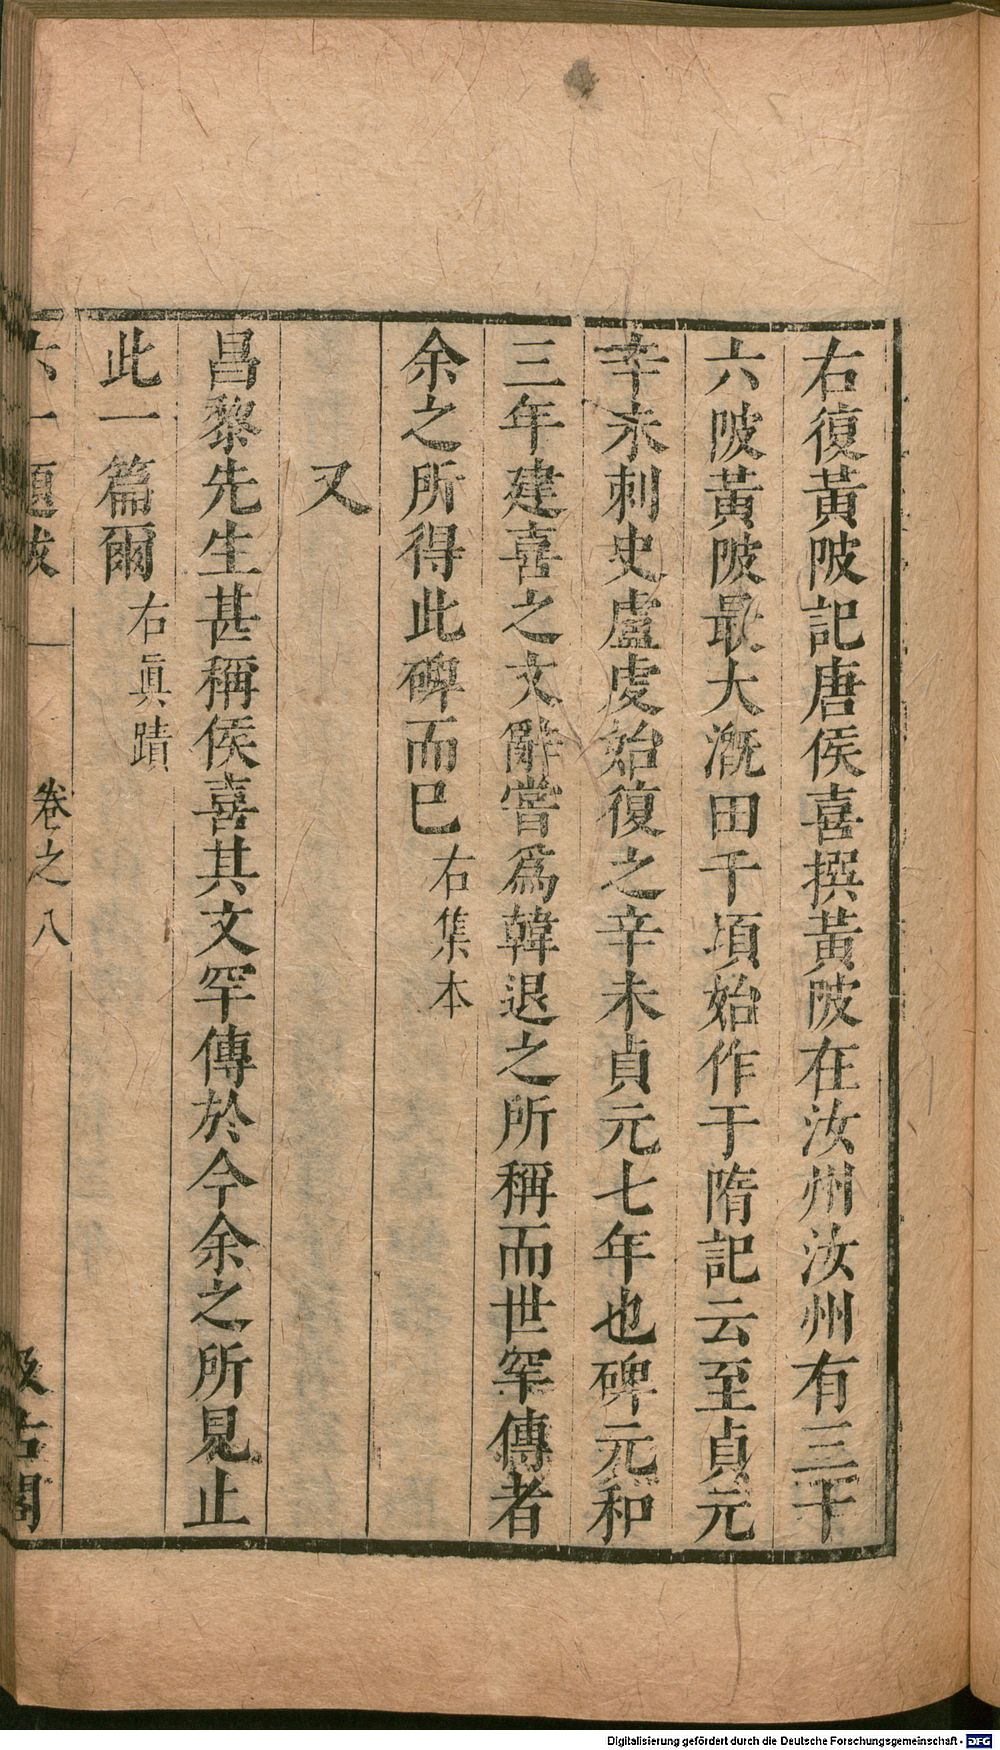 右復黃陂記唐侯喜撰黃陂在汝州汝州有三十
六陂黃陂最大漑田千頃始作于隋記云至貞元
辛未刺史盧虔始復之辛未貞元七年也碑元和
三年建喜之文辭嘗爲韓退之所稱而世罕傳者
余之所得此碑而已 右集本
又
昌黎先生甚稱侯喜其文罕傳於今余之所見止
此一篇爾 右眞蹟
六一題跋 卷之八 汲古閣
Digitalisierung gefördert durch die Deutsche Forschungsgemeinschaft - DFG